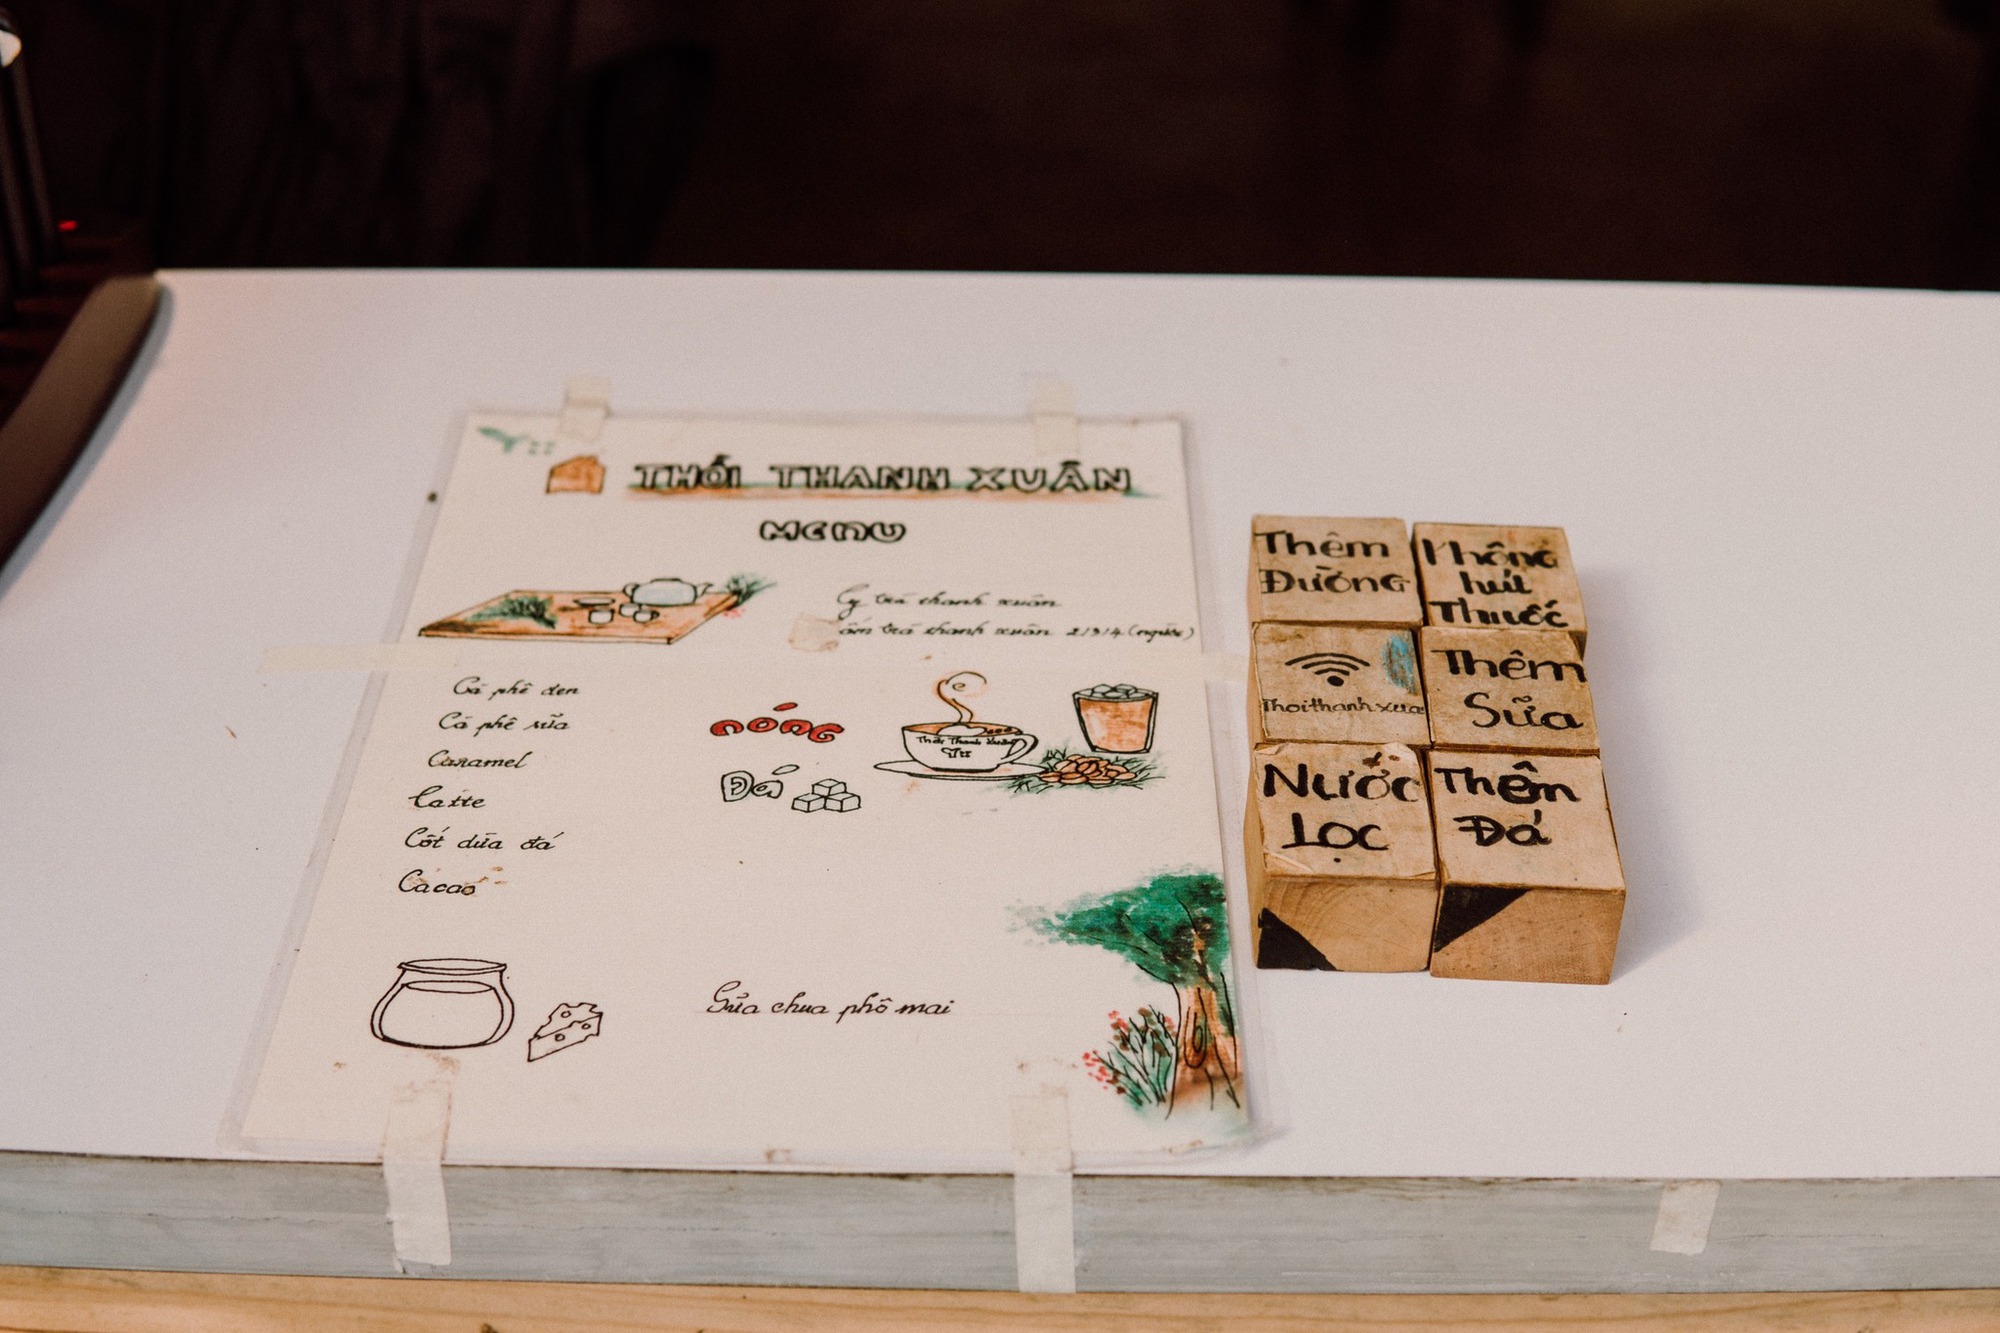 THỔI THANH XUÂN
MENU
Ly trà thanh xuân
ấm trà thanh xuân 2/3/4 (người)
Cà phê đen
Cà phê sữa
Caramel
Latte
Cốt dừa đá
Cacao
NÓNG
Đá
Thổi Thanh Xuân
Sữa chua phô mai
Thêm
Đường
Không
hút
Thuốc
Thoithanhxua
Thêm
Sữa
Nước
Lọc
Thêm
Đá